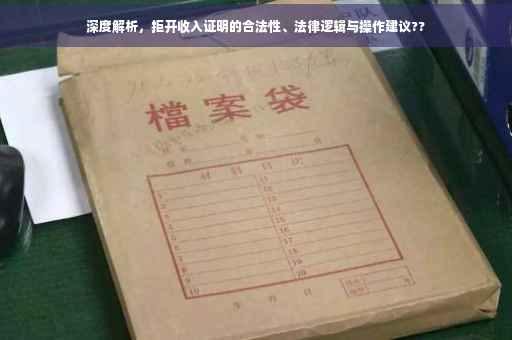 深度解析，拒开收入证明的合法性、法律逻辑与操作建议??
檔案袋
材料目次
1 11
2 12
3 13
4 14
5 15
6 16
7 17
8 18
9 19
10 20
年 月 日